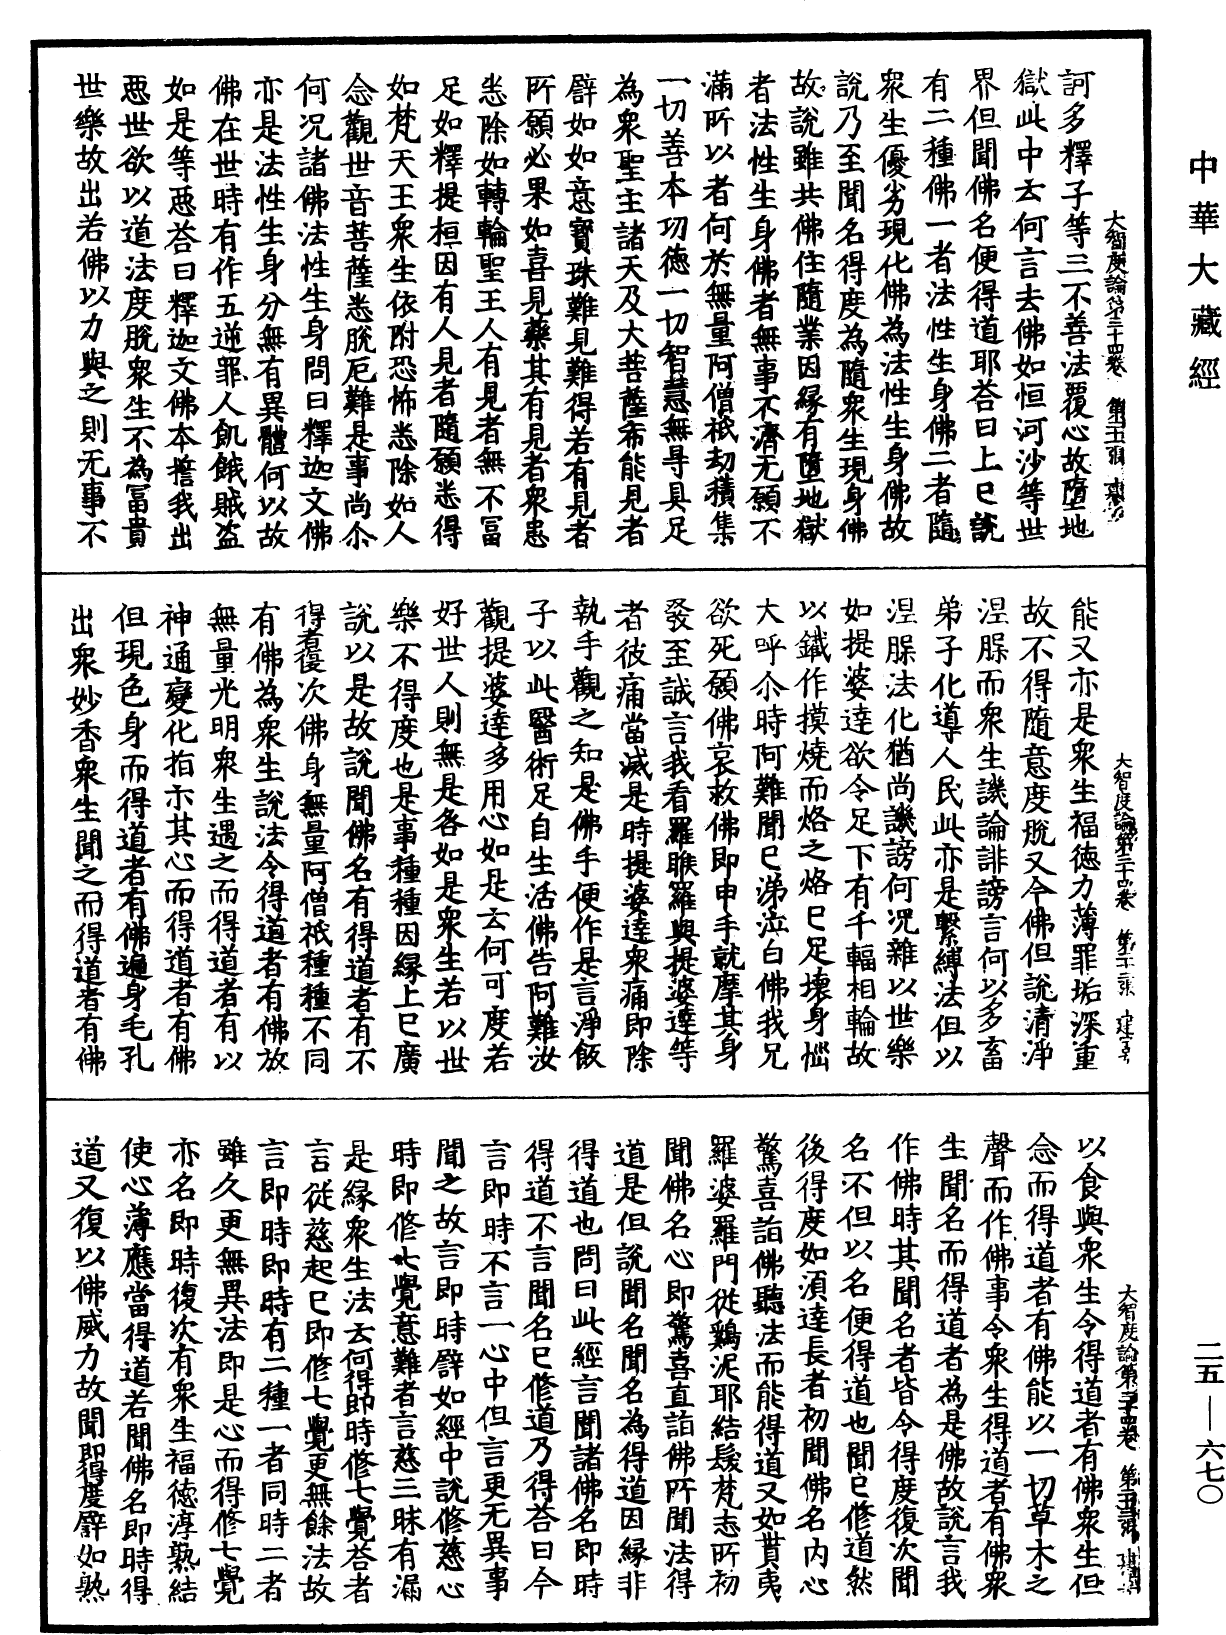 中華大藏經
大智度論第三十四卷
訶多釋子等三不善法覆心故墮地
獄此中云何言去佛如恒河沙等世
界但聞佛名便得道耶荅曰上已說
有二種佛一者法性生身佛二者隨
衆生優劣現化佛為法性生身佛故
說乃至聞名得度為隨衆生現身佛
故說雖共佛住隨業因緣有墮地獄
者法性生身佛者無事不濟无願不
滿所以者何於無量阿僧祇劫積集
一切善本功德一切智慧無㝵具足
為衆聖主諸天及大菩薩希能見者
譬如如意寶珠難見難得若有見者
所願必果如喜見藥其有見者衆患
悉除如轉輪聖王人有見者無不冨
足如釋提桓因有人見者隨願悉得
如梵天王衆生依附恐怖悉除如人
念觀世音菩薩悉脫厄難是事尚尒
何况諸佛法性生身問曰釋迦文佛
亦是法性生身分無有異體何以故
佛在世時有作五逆罪人飢餓賊盜
如是等惡荅曰釋迦文佛本誓我出
惡世欲以道法度脫衆生不為冨貴
世樂故出若佛以力與之則无事不
大智度論第三十四卷
能又亦是衆生福德力薄罪垢深重
故不得隨意度脫又今佛但說清淨
涅槃而衆生譏論誹謗言何以多畜
弟子化導人民此亦是繫縛法但以
涅槃法化猶尚譏謗何况雜以世樂
如提婆達欲令足下有千輻相輪故
以鐵作摸燒而烙之烙已足壞身惱
大呼尒時阿難聞已涕泣白佛我兄
欲死願佛哀救佛即申手就摩其身
發至誠言我看羅睺羅與提婆達等
者彼痛當滅是時提婆達衆痛即除
執手觀之知是佛手便作是言淨飯
子以此醫術足自生活佛告阿難汝
觀提婆達多用心如是云何可度若
好世人則無是咎如是衆生若以世
樂不得度也是事種種因緣上已廣
說以是故說聞佛名有得道者有不
得者復次佛身無量阿僧祇種種不同
有佛為衆生說法令得道者有佛放
無量光明衆生遇之而得道者有以
神通變化指示其心而得道者有佛
但現色身而得道者有佛遍身毛孔
出衆妙香衆生聞之而得道者有佛
大智度論第三十四卷
以食與衆生令得道者有佛衆生但
念而得道者有佛能以一切草木之
聲而作佛事令衆生得道者有佛衆
生聞名而得道者為是佛故說言我
作佛時其聞名者皆令得度復次聞
名不但以名便得道也聞已修道然
後得度如須達長者初聞佛名內心
驚喜詣佛聽法而能得道又如貰夷
羅婆羅門從鷄泥耶結髮梵志所初
聞佛名心即驚喜直詣佛所聞法得
道是但說聞名聞名為得道因緣非
得道也問曰此經言聞諸佛名即時
得道不言聞名已修道乃得荅曰今
言即時不言一心中但言更无異事
聞之故言即時譬如經中說修慈心
時即修七覺意難者言慈三昧有漏
是緣衆生法云何得即時修七覺荅者
言從慈起已即修七覺更無餘法故
言即時即時有二種一者同時二者
雖久更無異法即是心而得修七覺
亦名即時復次有衆生福德淳熟結
使心薄應當得道若聞佛名即時得
道又復以佛威力故聞即得度譬如熟
二五—六七〇